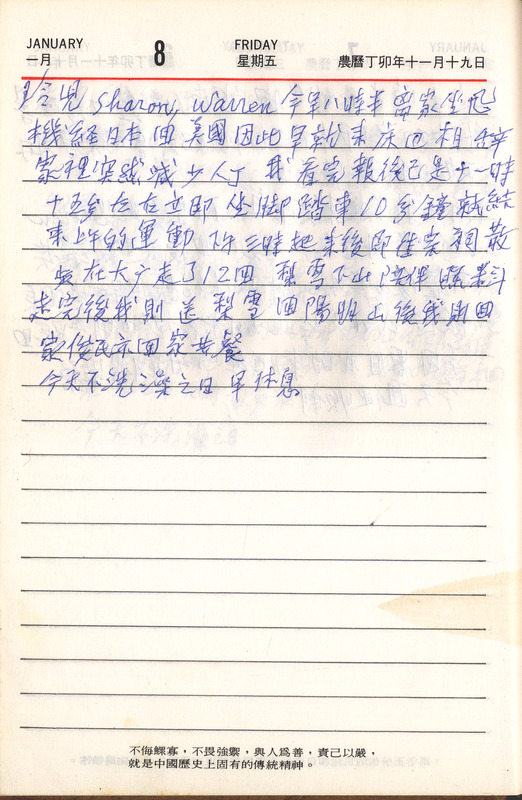 JANUARY 8 FRIDAY
一月 星期五 農曆丁卯年十一月十九日
玲兒 Sharon, Warren 今早八時半离家坐飛
機経日本回美國因此早就来床边相辞
家裡突然减少人丁 我看完報後已是十一時
十五分左右立即坐脚踏車10分鐘就結
束上午的運動 下午三時起来後即往宗祠散
步 在大广走了12回 梨雪下山陪伴
走完後我則送梨雪回陽明山後我則回
家俊民亦回家共餐
今天不洗澡之日 早休息
不侮鰥寡，不畏強禦，與人爲善，責己以嚴，
就是中國歷史上固有的傳統精神。